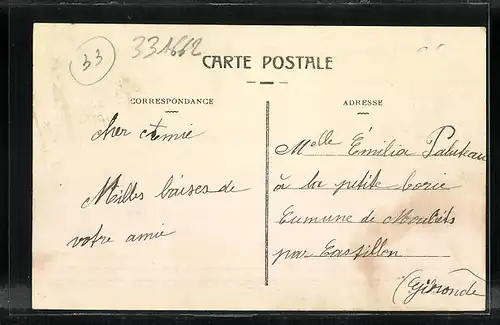 33
331662
CARTE POSTALE
CORRESPONDANCE
ADRESSE
cher Amie
Milles baises de
votre amie
Melle Émilia Paluteau
à la petite borie
Cumune de Mouliéts
par Castillon
(Gironde)